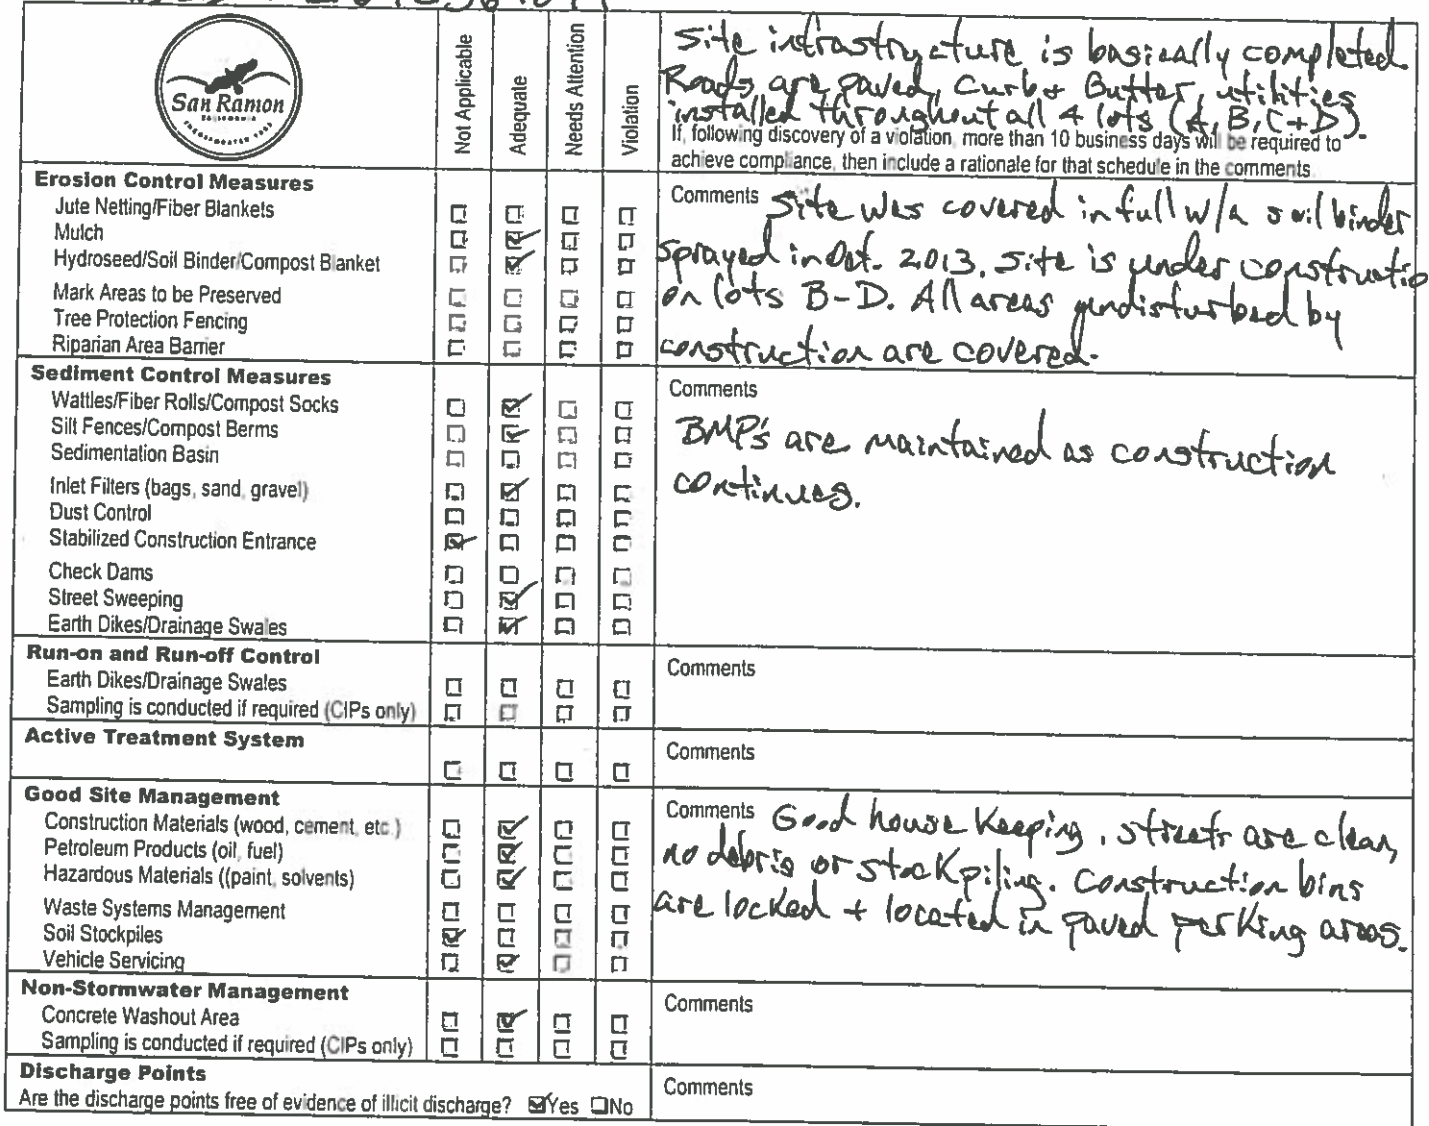 San Ramon
CALIFORNIA
INCORPORATED 1983
Not Applicable
Adequate
Needs Attention
Violation
Site infrastrycture is basically completed.
Roads are paved, Curb + Butter, utilities
installed throughout all 4 lots (A, B, C + D).
If, following discovery of a violation, more than 10 business days will be required to
achieve compliance, then include a rationale for that schedule in the comments
Erosion Control Measures
Jute Netting/Fiber Blankets
Mulch
Hydroseed/Soil Binder/Compost Blanket
Mark Areas to be Preserved
Tree Protection Fencing
Riparian Area Barrier
Comments Site was covered in full w/a soil binder
sprayed in Oct. 2013. Site is under constructio
on lots B-D. All areas undisturbed by
construction are covered.
Sediment Control Measures
Wattles/Fiber Rolls/Compost Socks
Silt Fences/Compost Berms
Sedimentation Basin
Inlet Filters (bags, sand, gravel)
Dust Control
Stabilized Construction Entrance
Check Dams
Street Sweeping
Earth Dikes/Drainage Swales
Comments
BMP's are maintained as construction
continues.
Run-on and Run-off Control
Earth Dikes/Drainage Swales
Sampling is conducted if required (CIPs only)
Comments
Active Treatment System
Comments
Good Site Management
Construction Materials (wood, cement, etc.)
Petroleum Products (oil, fuel)
Hazardous Materials ((paint, solvents)
Waste Systems Management
Soil Stockpiles
Vehicle Servicing
Comments Good house Keeping, streets are clean,
no debris or stockpiling. Construction bins
are locked + located in paved parking areas.
Non-Stormwater Management
Concrete Washout Area
Sampling is conducted if required (CIPs only)
Comments
Discharge Points
Are the discharge points free of evidence of illicit discharge? Yes No
Comments